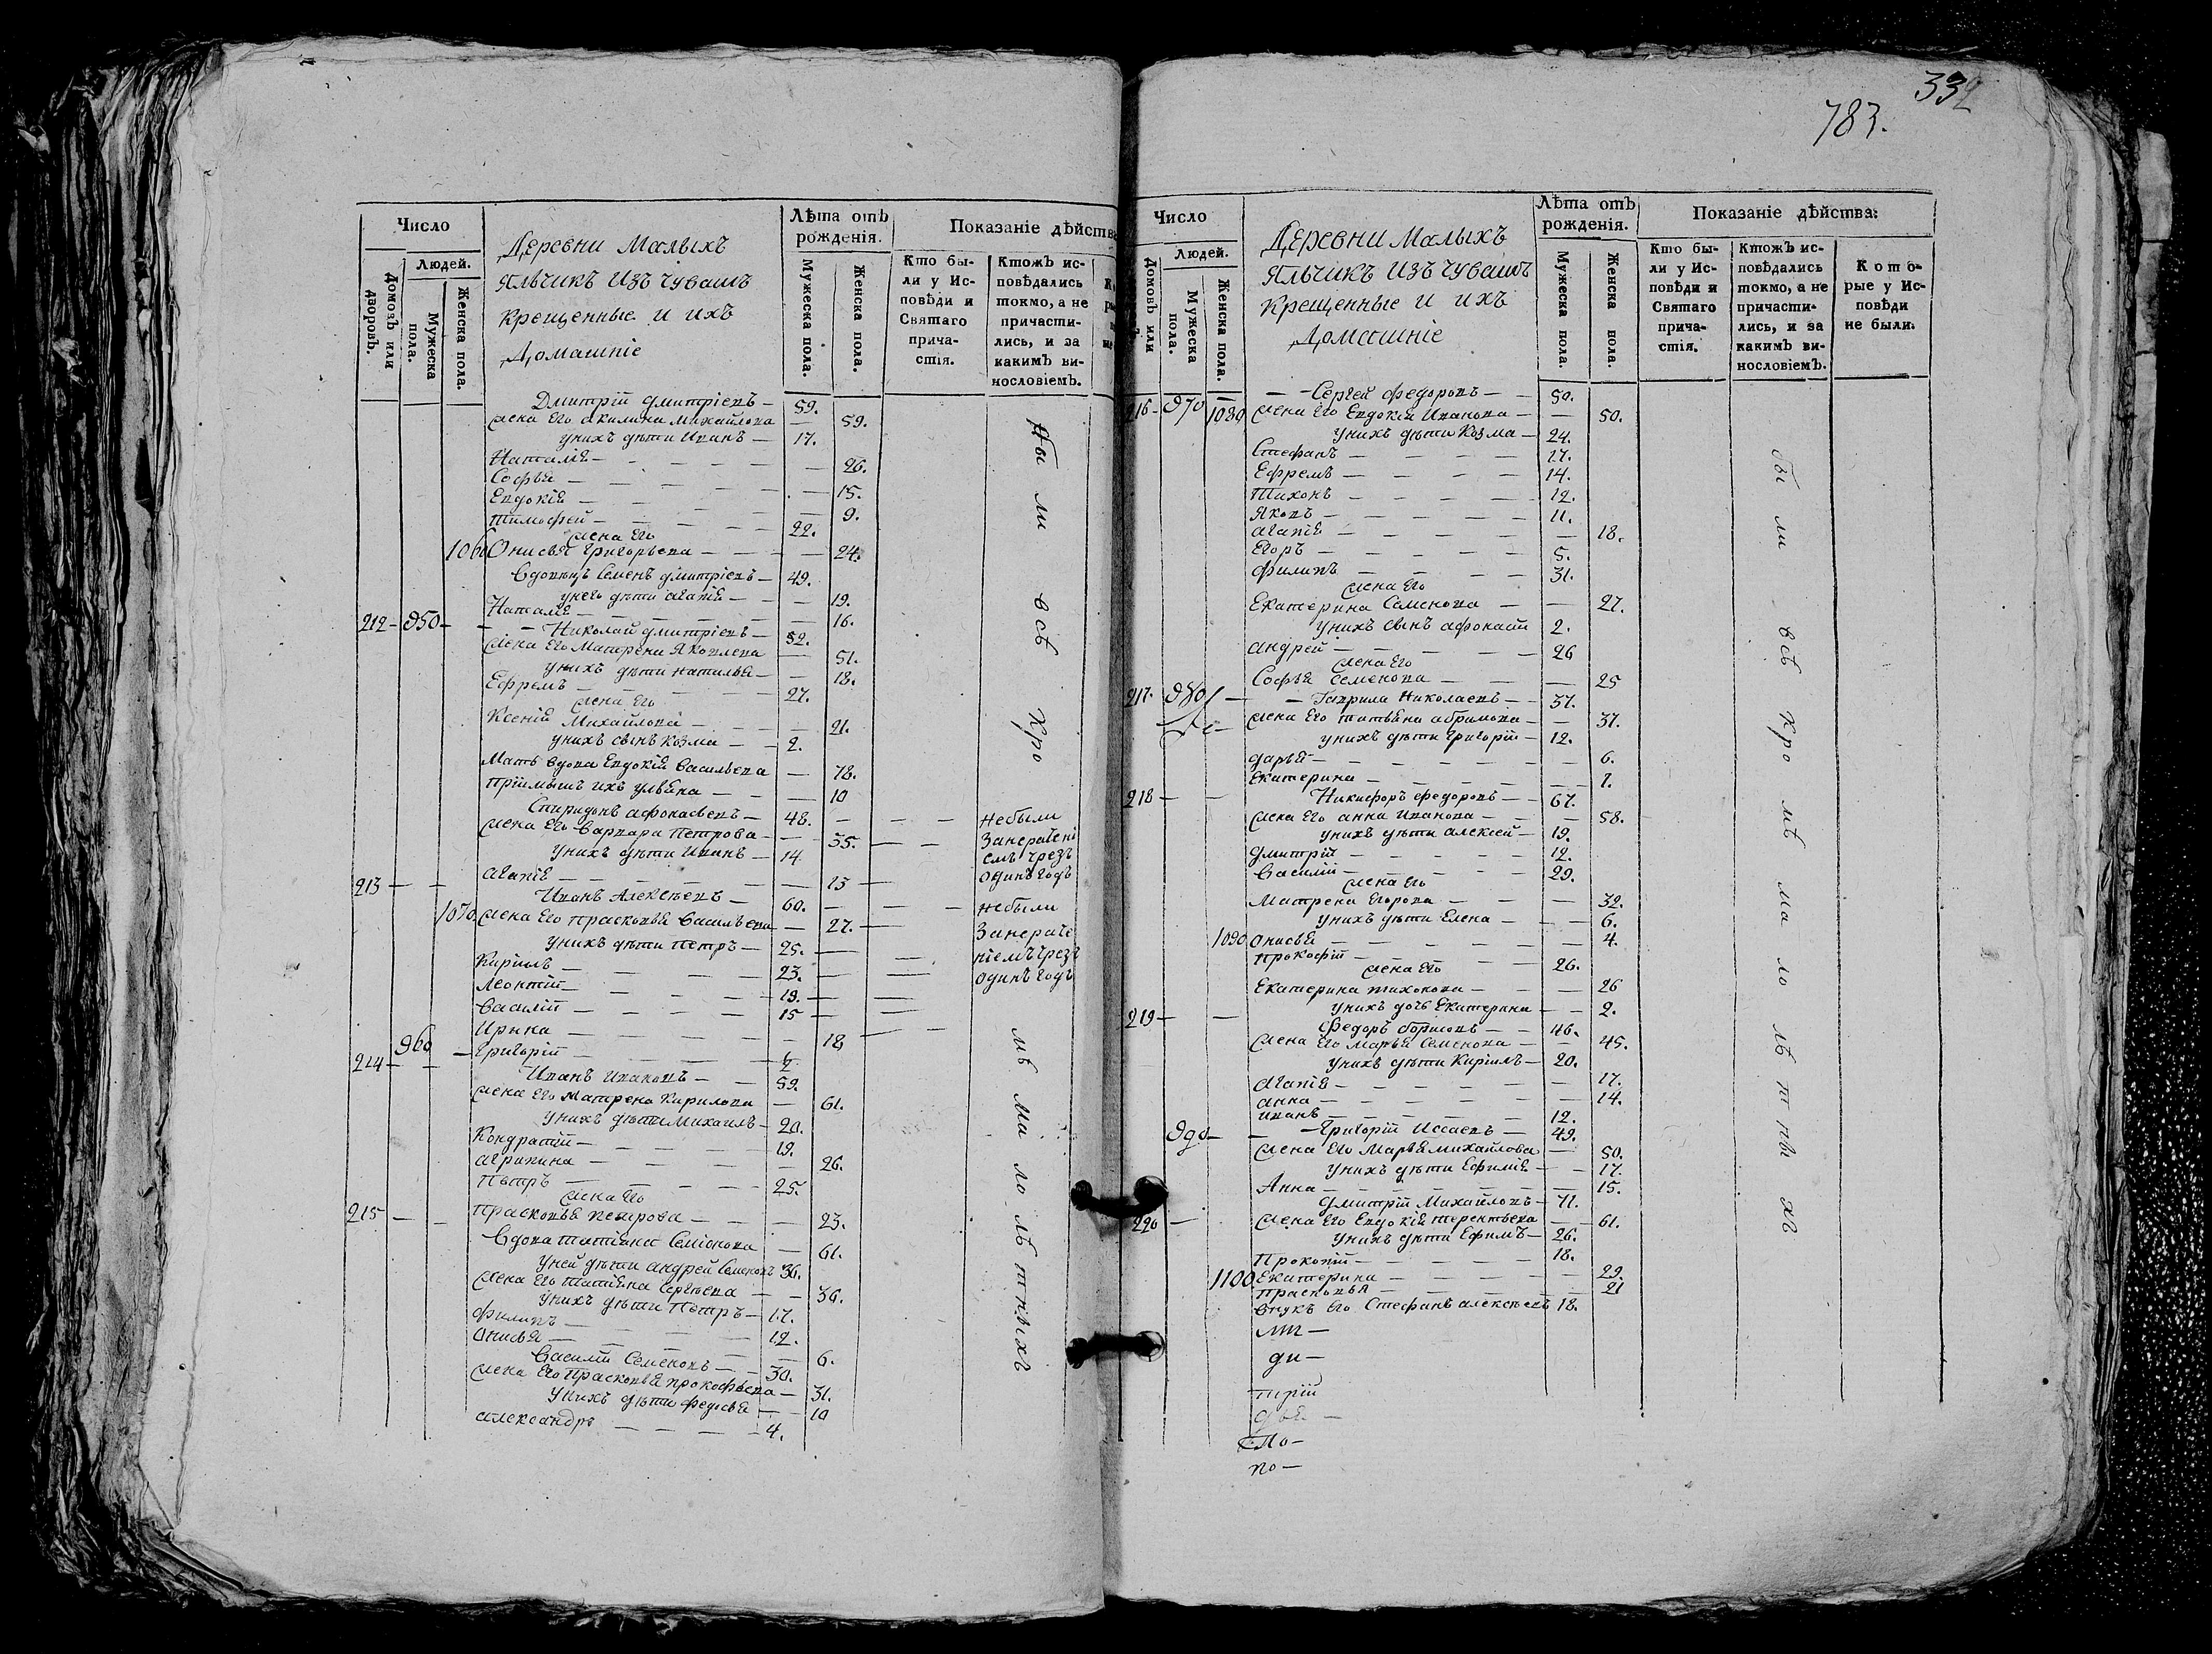 Число
Людей.
Домовъ или дворовъ.
Мужеска пола.
Женска пола.
Деревни Малыхъ
Яльчикъ изъ чувашъ
крещенные и ихъ
Домашніе
Лѣта отъ рожденія.
Мужеска пола.
Женска пола.
Показаніе дѣйства
Кто бы-
ли у Ис-
повѣди и
Святаго
прича-
стія.
Ктожъ ис-
повѣдались
токмо, а не
причасти-
лись, и за
какимъ ви-
нословіемъ.
Дмитрій Дмитріевъ — 59.
жена Его акилина Михайлова — 59.
унихъ дѣти Иванъ — 17.
Наталія — 26.
Софья — 15.
Евдокія — 9.
тимофей — 22.
жена Его
1060 Онисья Григорьева — 24.
вдовецъ Семенъ Дмитріевъ — 49.
унего дѣти агапія — 19.
Наталія — 16.
212 — 950 — Николай Дмитріевъ — 52.
жена Его Матрена Яковлева — 51.
унихъ дѣти наталья — 18.
Ефремъ — 27.
жена Его
Ксенія Михайлова — 21.
унихъ сынъ Козма — 2.
Мать вдова Евдокія васильева — 78.
пріимышъ ихъ ульяна — 10
Спиридонъ афонасьевъ — 48. — небыли
жена Его варвара петрова — 55. — Занераченi
унихъ дѣти Иванъ — 14. емъ чрезъ
агапія — 13 — одинъ годъ
213 — Иванъ Алексѣевъ — 60. — небыли
1070 жена Его прасковья васильева — 27. — Занераче
унихъ дѣти петръ — 25. — ніемъ чрезъ
Кирилъ — 23. — одинъ годъ
Леонтій — 19.
василій — 15
Ирина — 18.
960 — григорій —
214 — Иванъ Ивановъ — 59.
жена Его Матрена Кирилова — 61.
унихъ дѣти Михаилъ — 20.
Кондратій — 19.
агрипина — 26.
петръ — 25.
жена Его
215 — прасковья петрова — 23.
вдова татіяна Семіонова — 61.
уней дѣти андрей Семеновъ 36.
жена Его татіяна Сергѣева — 36.
унихъ дѣти Петръ — 17.
филипъ — 12.
Онисья — 6.
василій Семеновъ — 30.
жена Его прасковья прокофьева — 31.
унихъ дѣти федосья — 10
александръ — 4.
были всѣ кромѣ малолѣтныхъ
783.
332
Число
Людей.
Домовъ или
Мужеска пола.
Женска пола.
Деревни Малыхъ
Яльчикъ изъ чувашъ
крещенные и ихъ
Домашніе
Лѣта отъ рожденія.
Мужеска пола.
Женска пола.
Показаніе дѣйства:
Кто бы-
ли у Ис-
повѣди и
Святаго
прича-
стія.
Ктожъ ис-
повѣдались
токмо, а не
причасти-
лись, и за
какимъ ви-
нословіемъ.
Кото-
рые у Ис-
повѣди
не были.
216 — 970 1080 — Сергей федоровъ — 50.
жена Его Евдокія Иванова — 50.
унихъ дѣти Козма — 24.
Стефанъ — 17.
Ефремъ — 14.
Тихонъ — 12.
Яковъ — 11.
агапія — 18.
Егоръ — 5.
филипъ — 31.
жена Его
Екатерина Семенова — 27.
унихъ сынъ афонасій 2.
андрей — 26
жена Его
Софья Семенова — 25
217. 980 — Гаврила Николаевъ — 37.
жена Его татьяна абрамова — 37.
унихъ дѣти григорій — 12.
дарья — 6.
Екатерина — 1.
218 — Никифоръ федоровъ — 67.
жена Его анна Иванова — 58.
унихъ дѣти алексей — 19.
дмитрій — 12.
василій — 29.
жена Его
Матрена Егорова — 32.
унихъ дѣти Елена — 6.
1090 Онисья — 4.
прокофій — 26.
жена Его
Екатерина тихонова — 26
унихъ дочь Екатерина — 2.
219 — федоръ борисовъ — 46.
жена Его марья Семенова — 45.
унихъ дѣти Кирилъ — 20.
агапія — 17.
анна — 14.
иванъ — 12.
990 — григорій Иссаевъ — 49.
жена Его Марья михайлова — 50.
унихъ дѣти Ефимія — 17.
Анна — 15.
220 — дмитрій Михайловъ — 71.
жена Его Евдокія терентьева — 61.
унихъ дѣти Ефимъ — 26.
Прокопій — 18.
1100 Екатерина — 29.
прасковья — 21
внукъ Его Стефанъ алексѣевъ 18.
были всѣ кромѣ малолѣтныхъ
ди —
терій
по —